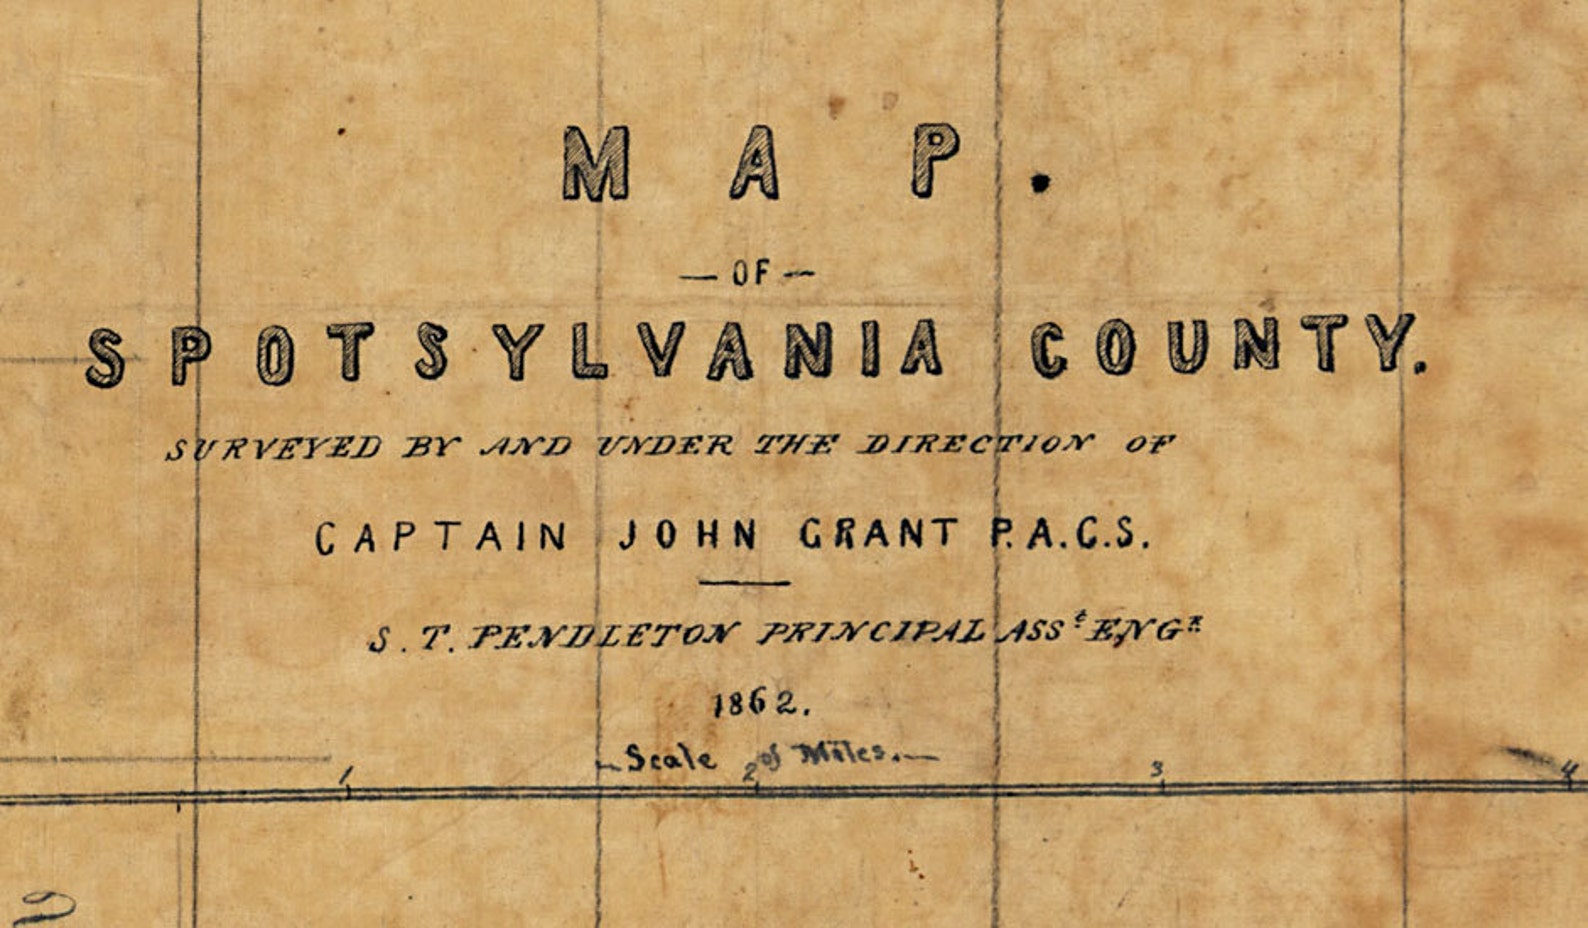 MAP.
— OF —
SPOTSYLVANIA COUNTY.
SURVEYED BY AND UNDER THE DIRECTION OF
CAPTAIN JOHN GRANT P.A.C.S.
S. T. PENDLETON PRINCIPAL ASSᵗ ENGᴿ
1862.
— Scale of Miles. —
1 2 3 4